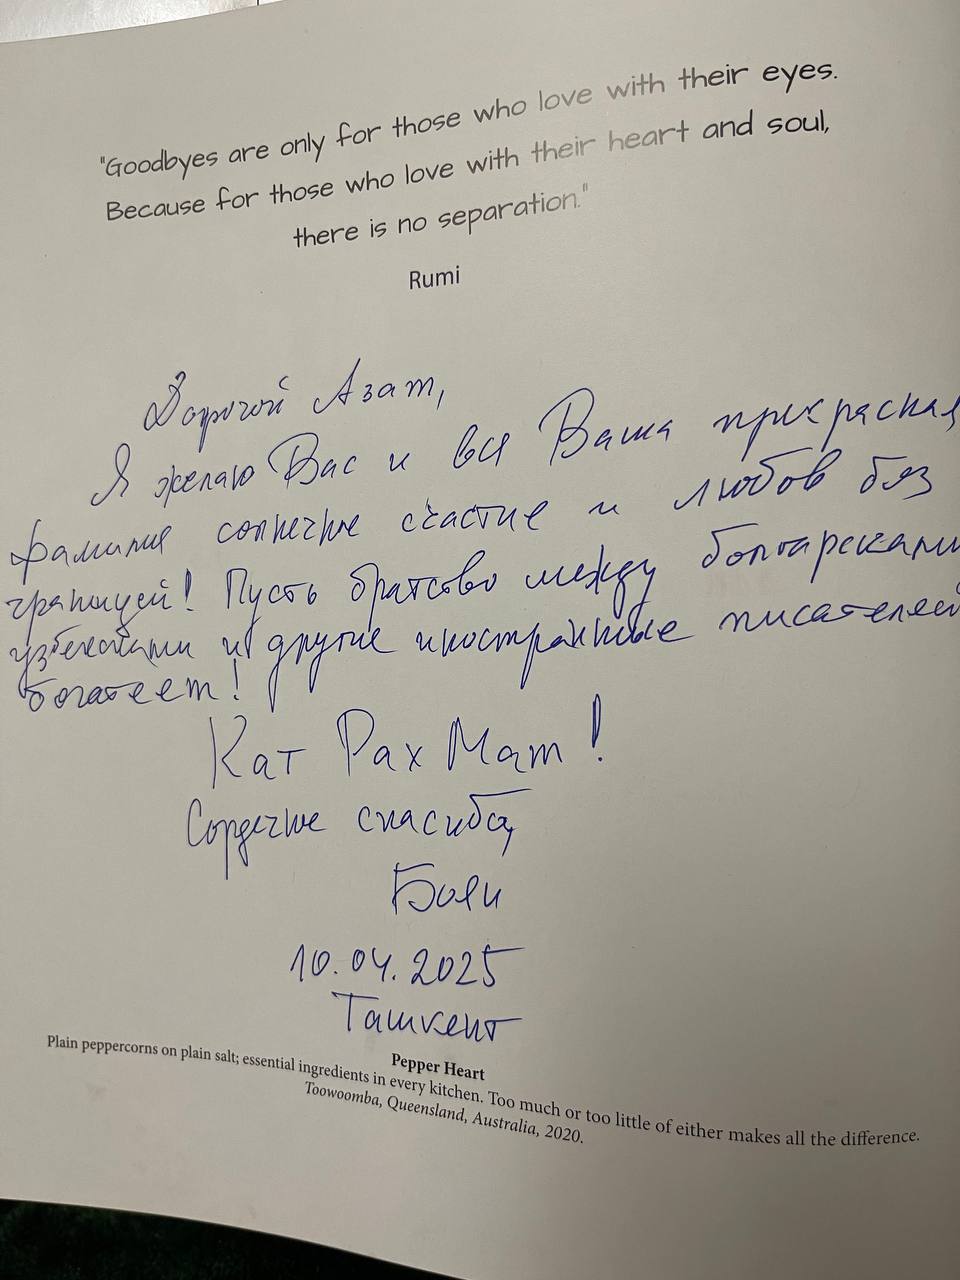 "Goodbyes are only for those who love with their eyes.
Because for those who love with their heart and soul,
there is no separation."
Rumi
Дорогой Азат,
Я желаю Вас и вся Ваша прекрасная
фамилия солнечне счастие и любов бяз
границей! Пусть братсво между болгарсками
узбекстами и другие иностранные писателей
богатеет!
Кат Рах Мат!
Сордечне спасиба,
Бояи
10.04.2025
Ташкент
Pepper Heart
Plain peppercorns on plain salt; essential ingredients in every kitchen. Too much or too little of either makes all the difference.
Toowoomba, Queensland, Australia, 2020.